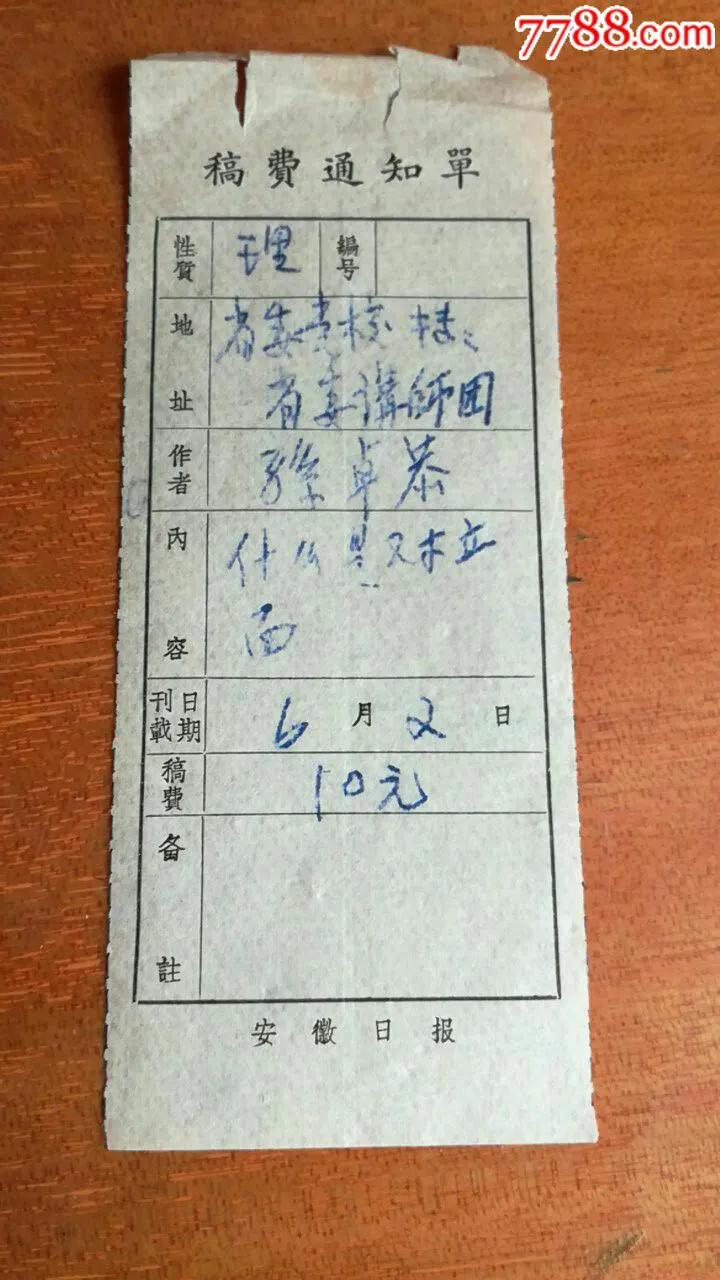 7788.com
稿費通知單
性質 理 编号
地址 省委党校
省委講師团
作者 卓恭
内容 什么是对立
面
刊載日期 6月2日
稿費 10元
备註
安徽日报